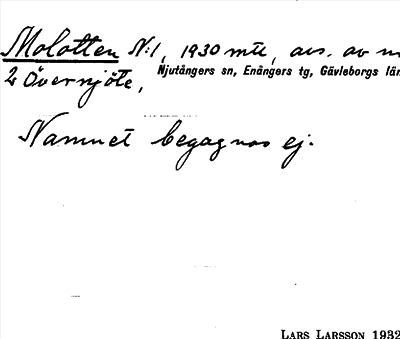 Molotten N:1, 1930 mtl, avs. av n
2 Övernjöte, Njutångers sn, Enångers tg, Gävleborgs län
Namnet begagnas ej.
LARS LARSSON 1932